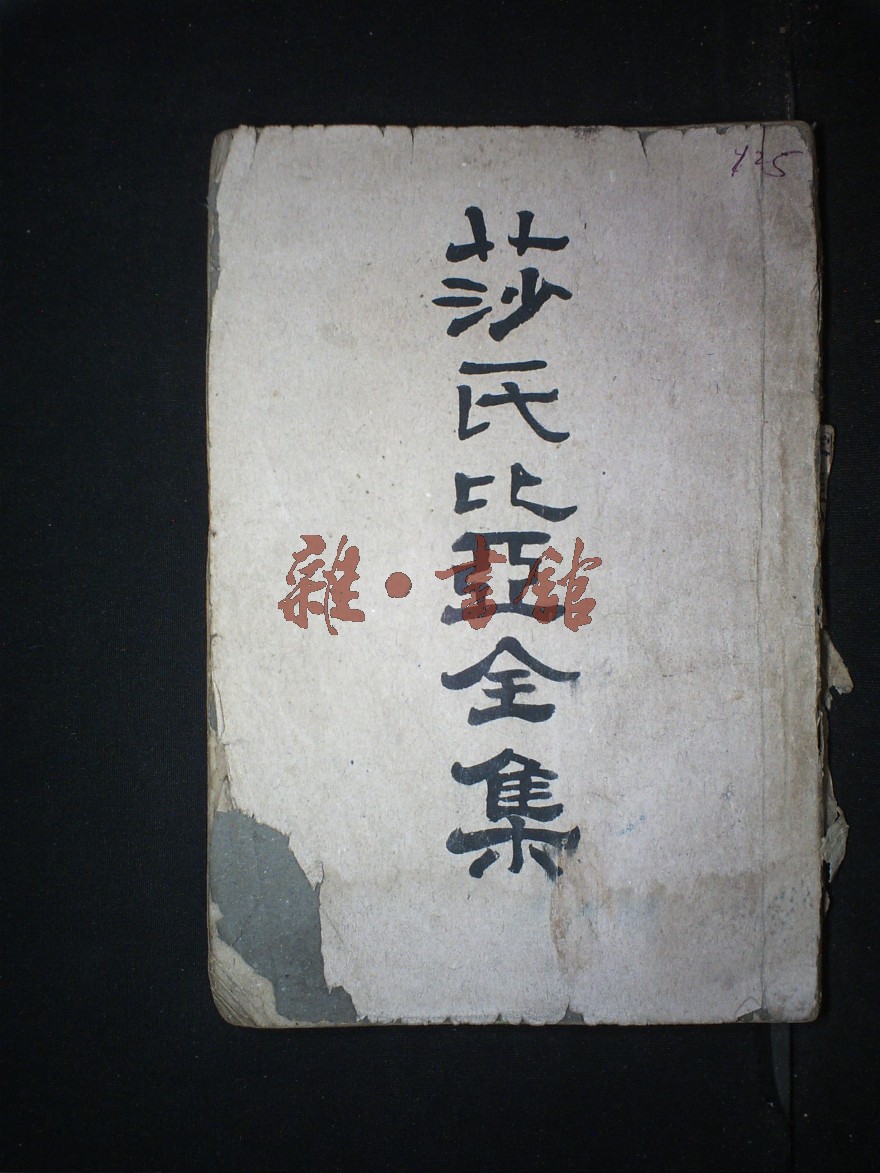 莎氏比亞全集
雜·書館
425